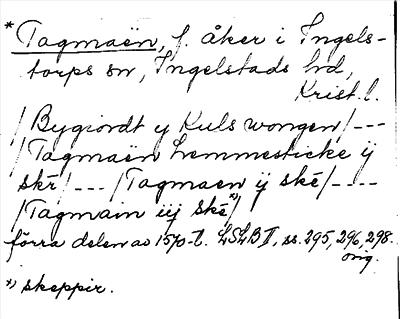 * Tagmaën, f. åker i Ingels-
torps sn, Ingelstads hd,
Krist. l.
/Bygiordt y Kuls wongen/---
/Tagmaën hemmesticke ij
skr/---/Tagmaen ij ské/----
/Tagmain iij ské*)/
förra delen av 1570-t. LSLB II, ss. 295, 296, 298.
orig.
*) skeppir.